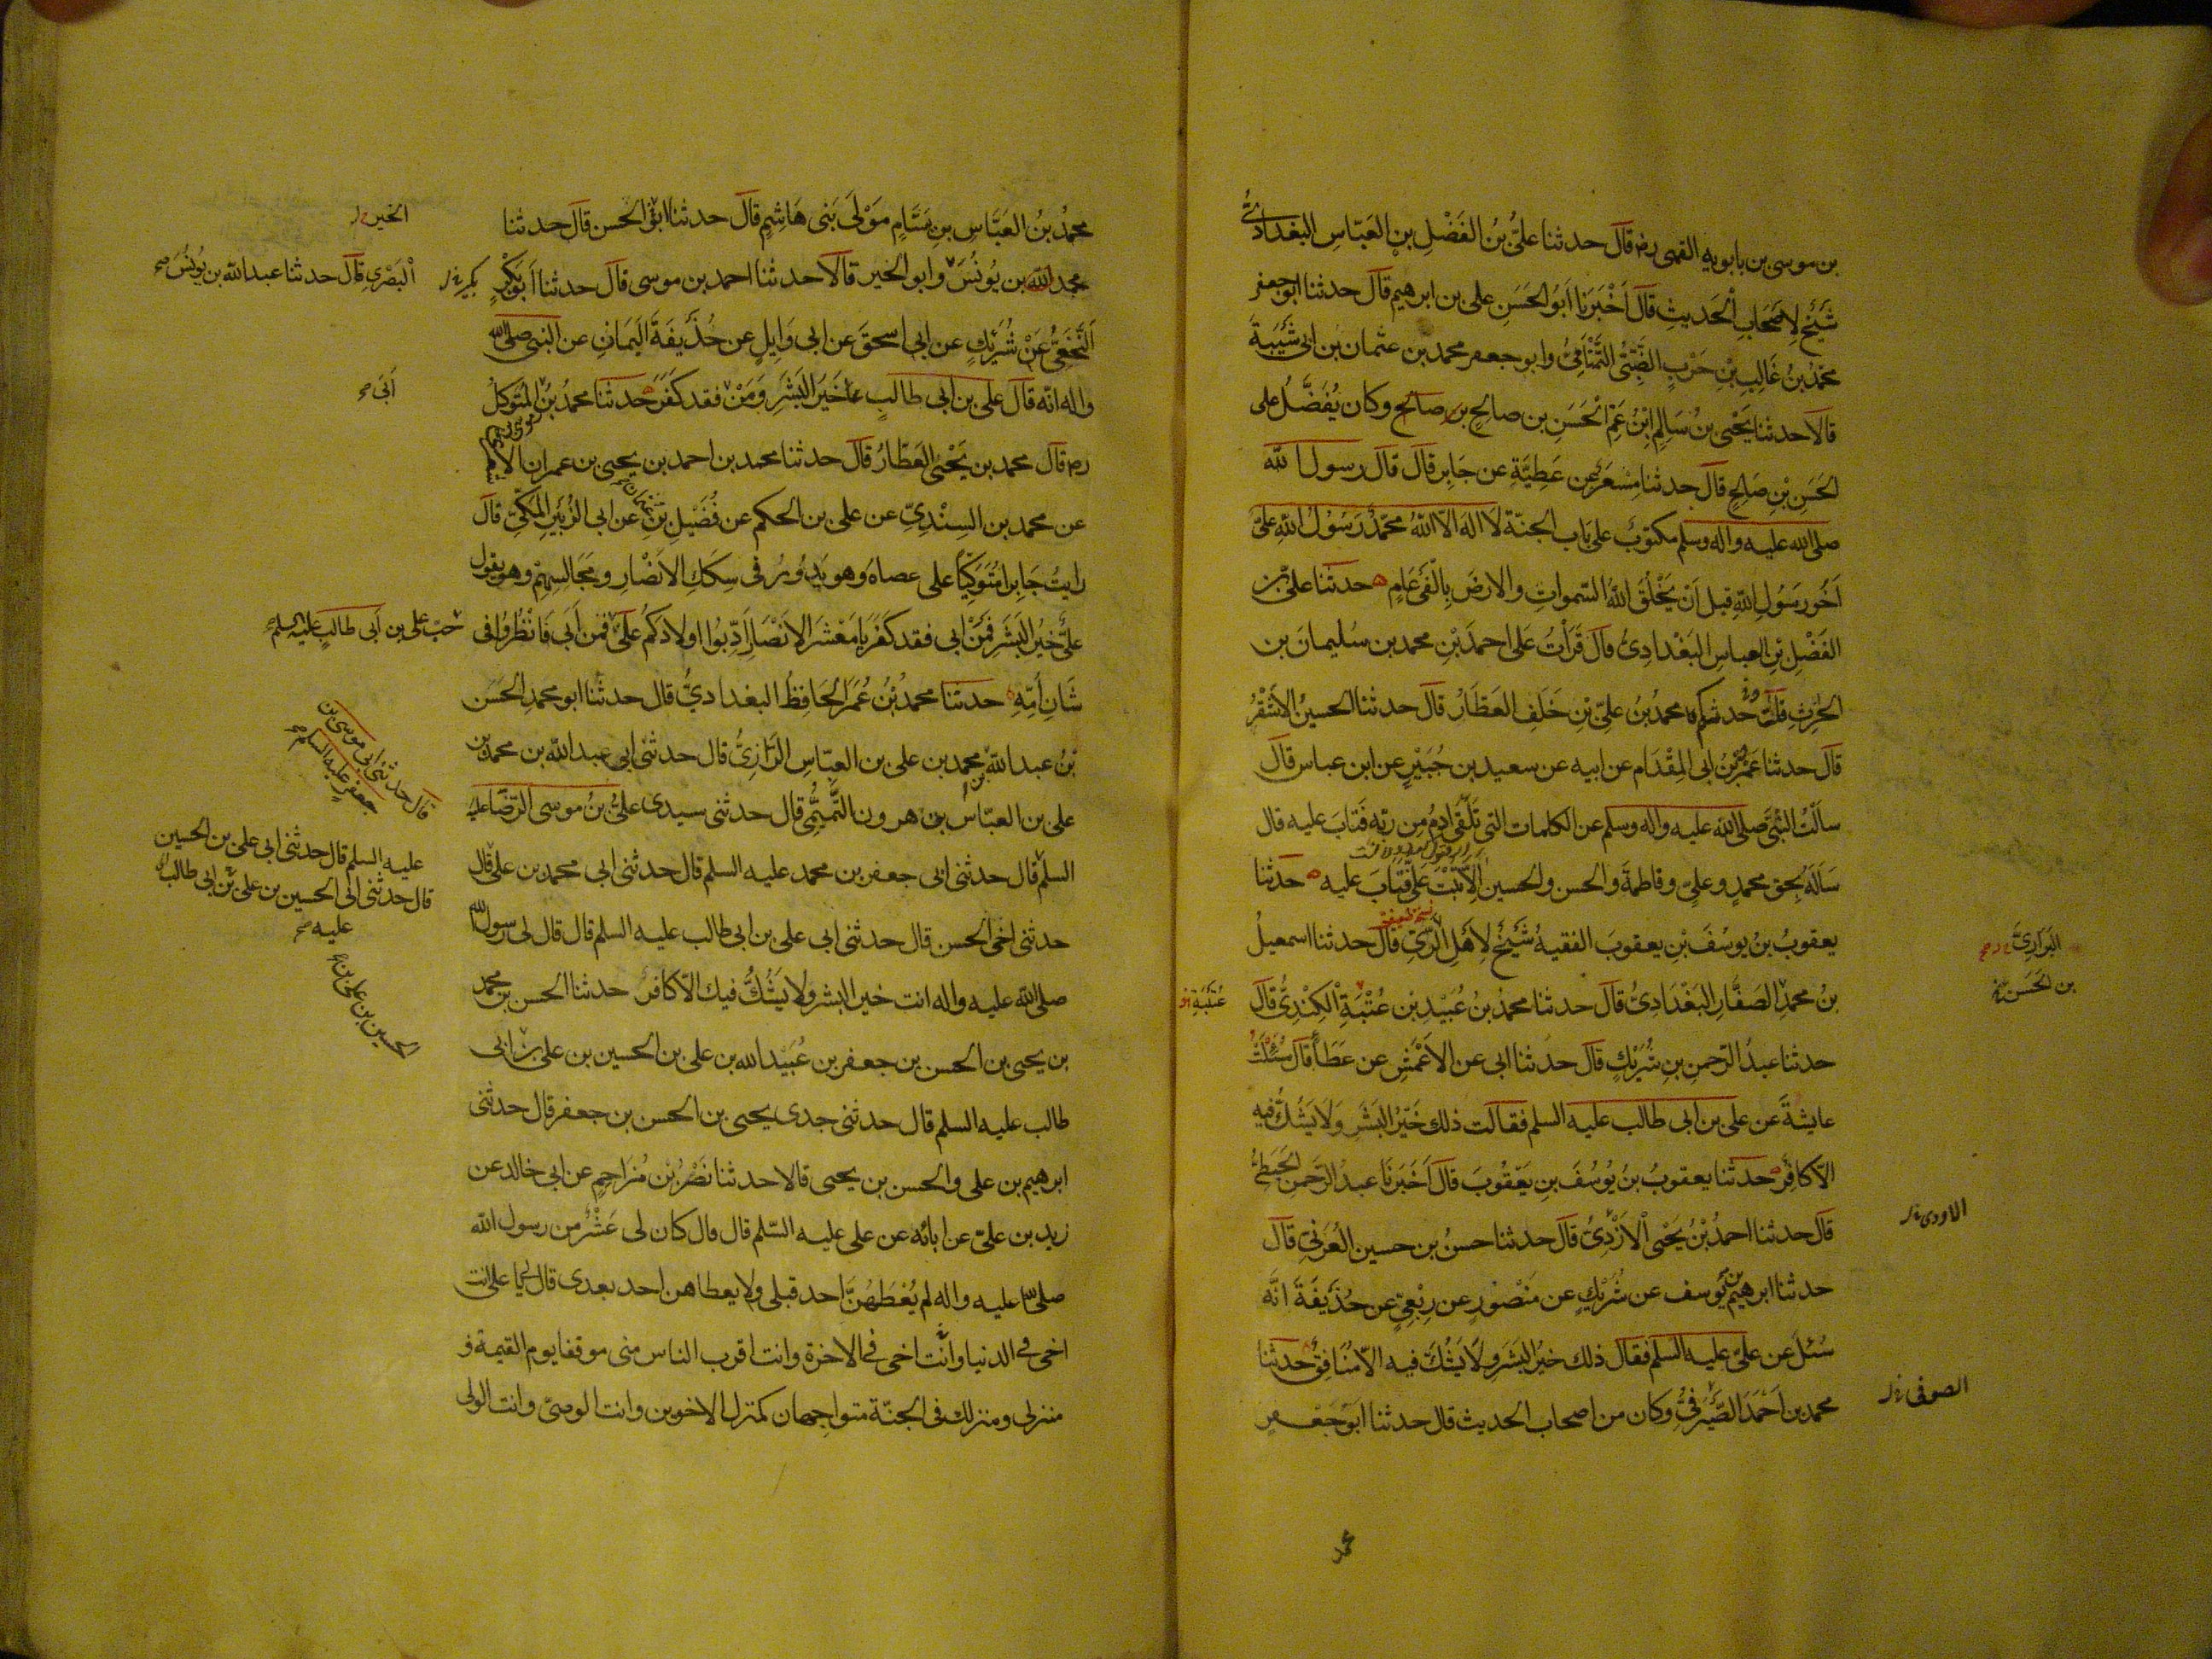 بن موسى بن بابويه القمى رض قال حدثنا علىّ بن الفَضْلِ بنِ العَبّاسِ البغدادىّ
شَيْخٌ لِاَصْحَابِ الْحَديثِ قالَ اَخْبَرَنا اَبُو الحَسَنِ على بن ابرهيم قال حدثنا ابوجعفر
محمّدُ بنُ غَالِبِ بْنِ حَرْبٍ الضَّبّىُّ التَّمْتَامِىُّ وابو جعفر محمد بن عثمان بن ابى شَيْبَةَ
قالاَ حدثنا يَحْيى بنُ سَالِمٍ ابْنُ عَمِّ الْحَسَنِ بن صالحٍ بن صالح وكان يُفَضَّلُ على
الحَسَنِ بْنِ صَالِحٍ قال حدثنا مِسْعَرٌ عن عَطِيَّةِ عن جَابِرٍ قالَ قالَ رسول الله
صلى الله عليه واله وسلم مكتوبٌ على بَابِ الجنّة لَا اله الّا اللهُ محمّدٌ رَسُولُ اللهِ علىّ
اَخُو رَسُولِ اللهِ قبل اَنْ يَخْلُقَ اللهُ السّمواتِ والارضَ بِاَلْفَىْ عَامٍ حدثنا علىّ بن
الفَضْلِ بْنِ العباس البَغْدادِىُّ قالَ قَرَاْتُ عَلى احمدَ بْنِ محمد بن سُليمانَ بن
الحَرْثِ قالَ حدثكم محمدُ بنُ علِىّ بْنِ خَلَفٍ العَطَّارُ قالَ حدثنا الحسينُ الاَشْقَرُ
قالَ حدثنا عَمْرُو بْنُ ابى المِقْدَام عن ابيه عن سعيد بن جُبَيْرٍ عن ابن عباس قالَ
سالْتُ النّبىَّ صلى الله عليه واله وسلم عن الكلمات التى تَلَقّى ادمُ مِن ربّه فَتَابَ عليه قال
سَاَلَهُ بِحقّ محمدٍ وعلىٍ وفاطمةَ والحسن والحسين اِلّا تُبْتَ عَلَىَّ فَتَابَ عليه حدثنا
يعقوبُ بنُ يوسُفَ بْنِ يعقوبَ الفقيهُ شَيْخٌ لِاَهْلِ الرَّىّ قالَ حدثنا اسمعيلُ
بنُ محمدٍ الصَفّارُ البَغْدَادِىُّ قالَ حدثنا محمدُ بنُ عُبَيْدِ بْنِ عُتْبَةَ الْكِنْدِىُّ قَالَ
حدثنا عبدُ الرّحمنِ بنِ شُرَيْكٍ قالَ حدثنا ابى عن الاَعْمَشِ عن عَطَاٍ قالَ سُئلَتْ
عايشةَ عن على بن ابى طالب عليه السلم فقالت ذلك خَيْرُ البَشَرِ وَلا يَشُكُّ فيه
الّا كافرٌ حدثنا يعقوبُ بنُ يُوسُفَ بنِ يَعْقُوبَ قالَ اَخْبَرَنَا عبدُ الرّحمن الخَيَطِىُّ
قالَ حدثنا احمدُ بْنُ يَحْيى الاَزْدِىُّ قالَ حدثنا حسنُ بن حسين العُرَنىّ قالَ
حدثنا ابرهيمُ بن يُوسف عن شُرَيْكٍ عن مَنْصُورٍ عن رِبْعِىّ عن حُذَيفَةَ انّه
سُئلَ عن علىّ عليه السلم فقال ذلك خيرُ البَشَرِ ولا يَشُكُّ فيه الّا مُنَافِقٌ حدثنا
محمد بن اَحْمَدَ الصَّيْرَفىُّ وكان من اصحاب الحديث قال حدثنا ابوجَعْفَرٍ
البَرَازِىّ
بن الحَسَنِ
عُتَيْبَةَ
الاودى
الصوفى
محمد
محمّدُ بنُ العَبَّاسِ بنِ بَسَّامٍ مَوْلَى بَنى هَاشِمٍ قالَ حدثنا ابو الحسن قالَ حدثنا
محمد الله بن يُونُسَ وابو الخير قالاَ حدثنا احمد بن موسى قالَ حدثنا اَبُو بَكْرٍ
النَّخَعِىُّ عَنْ شُرَيْكٍ عن ابى اسحقَ عن ابى وَايِلٍ عن حُذَيفَةَ اليَمَانِ عن النبى صلى الله
واله انّه قالَ على بن ابى طالب خَيرُ البَشَرِ وَمَنْ فقد كَفَرَ حدثنا محمدُ بنُ المُتَوَكّلِ
رض قال محمد بن يَحْيى العَطّارُ قالَ حدثنا محمد بن احمد بن يحيى بن عمران
عن محمد بن السِنْدِىّ عن على بن الحكم عن فُضَيْلِ بْنِ عثمان عن ابى الزُبَيْرِ المَكّىّ قالَ
رايتُ جَابِرًا مُتَوَكِّيًا على عصاهُ وهو يَدُورُ فى سِكَكِ الاَنْصَارِ ومَجَالِسِهِمْ وهو يقول
علىٌّ خيرُ البَشَرِ فَمَنْ ابى فقد كَفَرَ يا مَعْشَرَ الاَنْصَارِ اَدِّبُوا اولادَكم على فمن اَبَى فَانْظُروا فى
شَانِ اُمِّهِ حدثنا محمدُ بْنُ عُمَرَ الحَافِظُ البغداديُّ قال حدثنا ابو محمدٍ الحَسَن
بْنُ عبد الله بن محمد بن على بن العبّاس الرّازِىُّ قال حدثنى ابى عبد الله بن محمد بن
على بن العبّاس بن هرون التَّمِيمُّى قال حدثنى سيدى علىّ بنُ موسى الرّضَا عليه
السلم قال حدثنى ابى جعفر بن محمد عليه السلم قال حدثنى ابى محمد بن على قال
حدثنى اخى الحسن قال حدثنى ابى على بن ابى طالب عليه السلم قال قال لى رسول الله
صلى الله عليه واله انت خير البشر ولا يشُكُّ فيك الّا كافرٌ حدثنا الحسن بن محمد
بن يحيى بن الحسن بن جعفر بن عُبَيْد الله بن على بن الحسين بن على بن ابى
طالب عليه السلم قال حدثنى جدى يحيى بن الحسن بن جعفر قال حدثنى
ابرهيم بن على والحسن بن يحيى قالا حدثنا نَصْرُ بْن مُزَاحِمٍ عن ابى خالد عن
زيد بن علىّ عن ابائه عن على عليه السّلم قال قال كان لى عَشْرٌ من رسول الله
صلى الله عليه واله لم يُعْطَهُنَّ احد قبلى ولا يعطاهن احد بعدى قال لى يا على انت
اخى فى الدنيا وانت اخى فى الاخرة وانت اقرب الناس منى موقفا يوم القيمة و
منزلى ومنزلك فى الجنّة متواجهان كمنزل الاخوين وانت الوصىّ وانت الولى
الخير
البَصْرِى قال حدثنا عبد الله بن يُونُسَ صح
بكير
اَبَى صح
حبّ على بن ابى طالب عليه السلم
قال حدثنى ابى موسى بن
جعفر عليه السلم صح
عليه السلم قال حدثنى ابى على بن الحسين
قال حدثنى ابى الحسين بن على بن ابى طالب
عليه صح
الحسين بن على بن